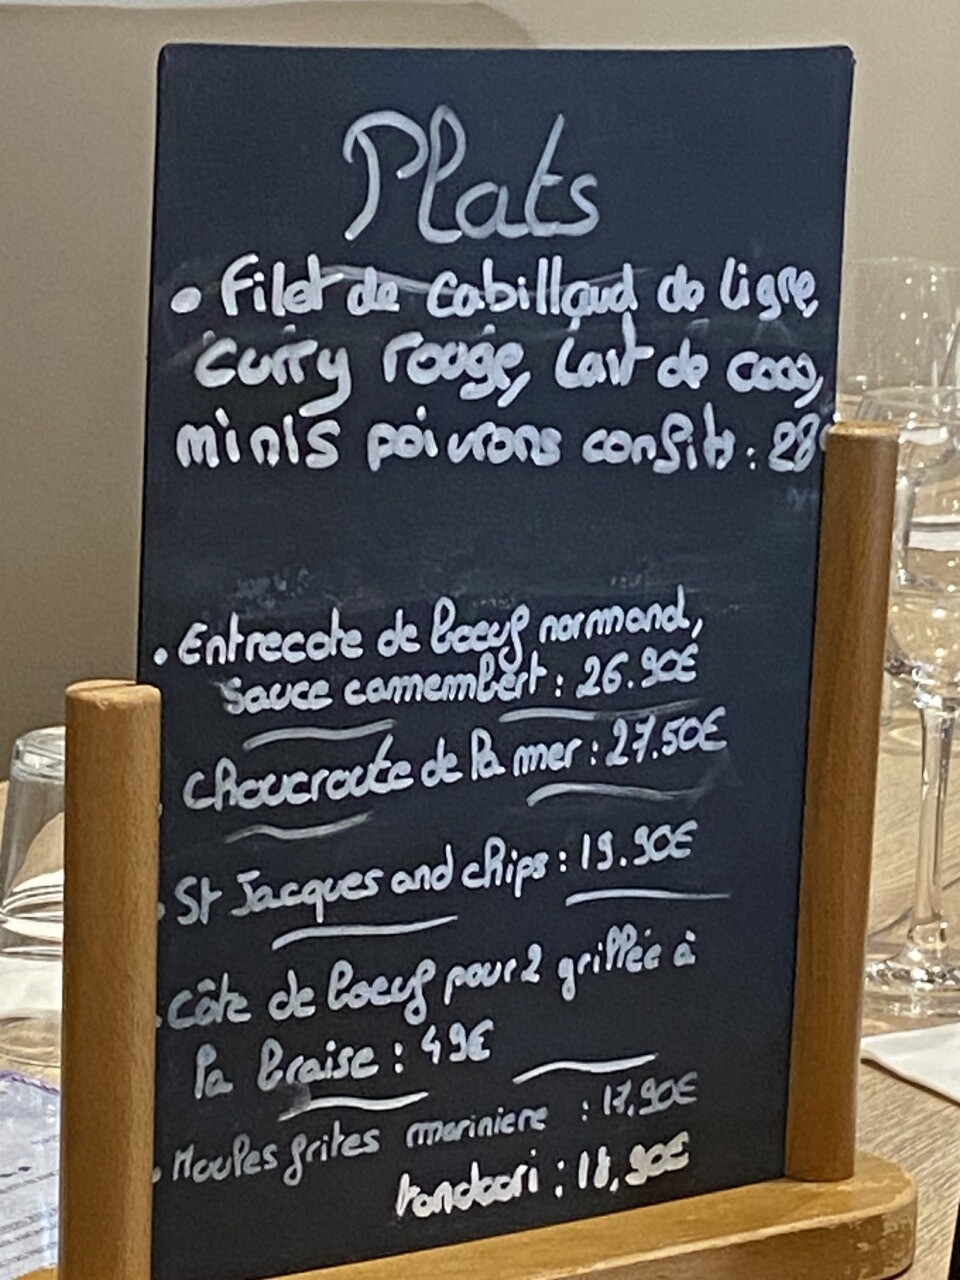 Plats
• Filet de Cabillaud de ligne,
Curry rouge, lait de coco,
minis poivrons confits : 28€
• Entrecote de boeuf normand,
Sauce camembert : 26.90€
Choucroute de la mer : 27.50€
• St Jacques and chips : 19.90€
• Côte de boeuf pour 2 grillée à
la braise : 49€
• Moules frites mariniere : 17,90€
tandoori : 18,90€